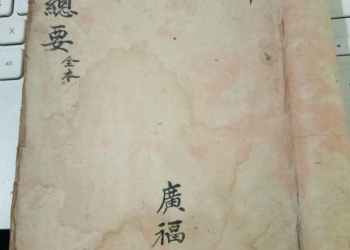 總要
全本
廣福